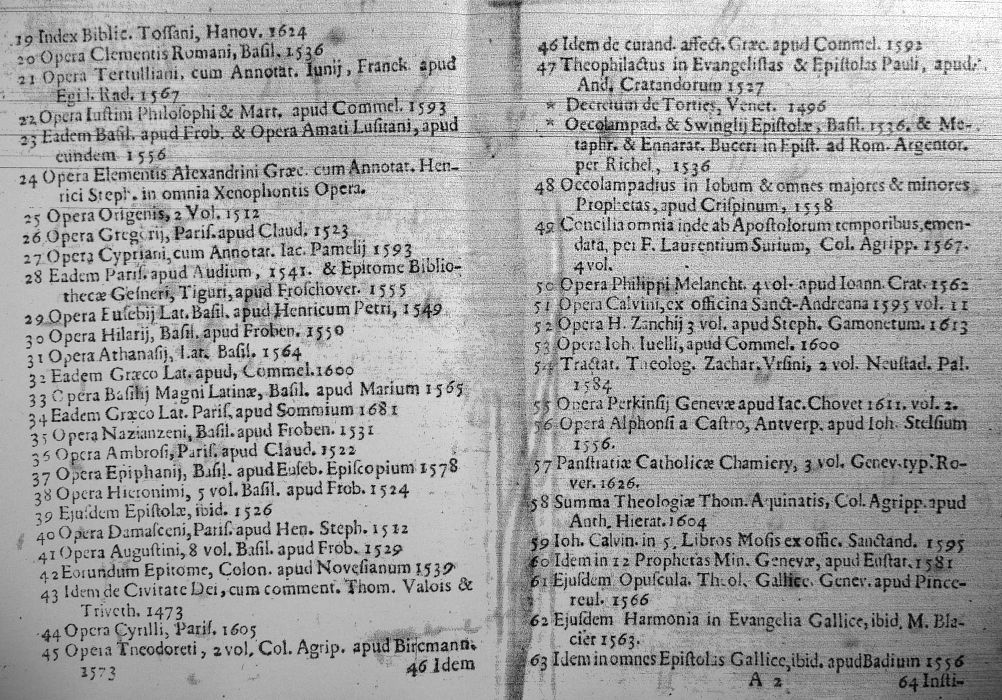 19 Index Biblic. Toſſani, Hanov. 1624
20 Opera Clementis Romani, Baſil. 1536
21 Opera Tertulliani, cum Annotat. Iunij, Franck. apud
Egi l. Rad. 1567
22 Opera Iuſtini Philoſophi & Mart. apud Commel. 1593
23 Eadem Baſil. apud Frob. & Opera Amati Luſitani, apud
eundem 1556
24 Opera Elementis Alexandrini Græc. cum Annotat. Hen-
rici Steph. in omnia Xenophontis Opera.
25 Opera Origenis, 2 Vol. 1512
26 Opera Gregorij, Pariſ. apud Claud. 1523
27 Opera Cypriani, cum Annotat. Iac. Pamelij 1593
28 Eadem Pariſ. apud Audium, 1541. & Epitome Biblio-
thecæ Geſneri, Tiguri, apud Froſchover. 1555
29 Opera Euſebij Lat. Baſil. apud Henricum Petri, 1549
30 Opera Hilarij, Baſil. apud Froben. 1550
31 Opera Athanaſij, Lat. Baſil. 1564
32 Eadem Græco Lat. apud, Commel. 1600
33 Opera Baſilij Magni Latinæ, Baſil. apud Marium 1565
34 Eadem Græco Lat. Pariſ. apud Sommium 1681
35 Opera Nazianzeni, Baſil. apud Froben. 1531
36 Opera Ambroſi, Pariſ. apud Claud. 1522
37 Opera Epiphanij, Baſil. apud Euſeb. Epiſcopium 1578
38 Opera Hieronimi, 5 vol. Baſil. apud Frob. 1524
39 Ejuſdem Epiſtolæ, ibid. 1526
40 Opera Damaſceni, Pariſ. apud Hen. Steph. 1512
41 Opera Auguſtini, 8 vol. Baſil. apud Frob. 1529
42 Eorundum Epitome, Colon. apud Noveſianum 1539
43 Idem de Civitate Dei, cum comment. Thom. Valois &
Triveth. 1473
44 Opera Cyrilli, Pariſ. 1605
45 Opera Theodoreti, 2 vol. Col. Agrip. apud Bircmann.
1573
46 Idem
46 Idem de curand. affect. Græc. apud Commel. 1592
47 Theophilactus in Evangeliſtas & Epiſtolas Pauli, apud.
And. Cratandorum 1527
* Decretum de Torties, Venet. 1496
* Oecolampad. & Swinglij Epiſtolæ, Baſil. 1536. & Me-
taphr. & Ennarat. Buceri in Epiſt. ad Rom. Argentor.
per Richel, 1536
48 Oecolampadius in Iobum & omnes majores & minores
Prophetas, apud Criſpinum, 1558
49 Concilia omnia inde ab Apoſtolorum temporibus, emen-
data, per F. Laurentium Surium, Col. Agripp. 1567.
4 vol.
50 Opera Philippi Melancht. 4 vol. apud Ioann. Crat. 1562
51 Opera Calvini, ex officina Sanct-Andreana 1595 vol. 11
52 Opera H. Zanchij 3 vol. apud Steph. Gamonetum. 1613
53 Opera Ioh. Iuelli, apud Commel. 1600
54 Tractat. Theolog. Zachar. Vrſini, 2 vol. Neuſtad. Pal.
1584
55 Opera Perkinſij Genevæ apud Iac. Chovet 1611. vol. 2.
56 Opera Alphonſi a Caſtro, Antverp. apud Ioh. Stelſium
1556.
57 Panſtratiæ Catholicæ Chamiery, 3 vol. Genev. typ. Ro-
ver. 1626.
58 Summa Theologiæ Thom. Aquinatis, Col. Agripp. apud
Anth. Hierat. 1604
59 Ioh. Calvin. in 5. Libros Moſis ex offic. Sanctand. 1595
60 Idem in 12 Prophetas Min. Genevæ, apud Euſtat. 1581
61 Ejuſdem Opuſcula. Theol. Gallice. Genev. apud Pince-
reul. 1566
62 Ejuſdem Harmonia in Evangelia Gallice, ibid. M. Bla-
cier 1563.
63 Idem in omnes Epiſtolas Gallice, ibid. apud Badium 1556
A 2
64 Inſti-